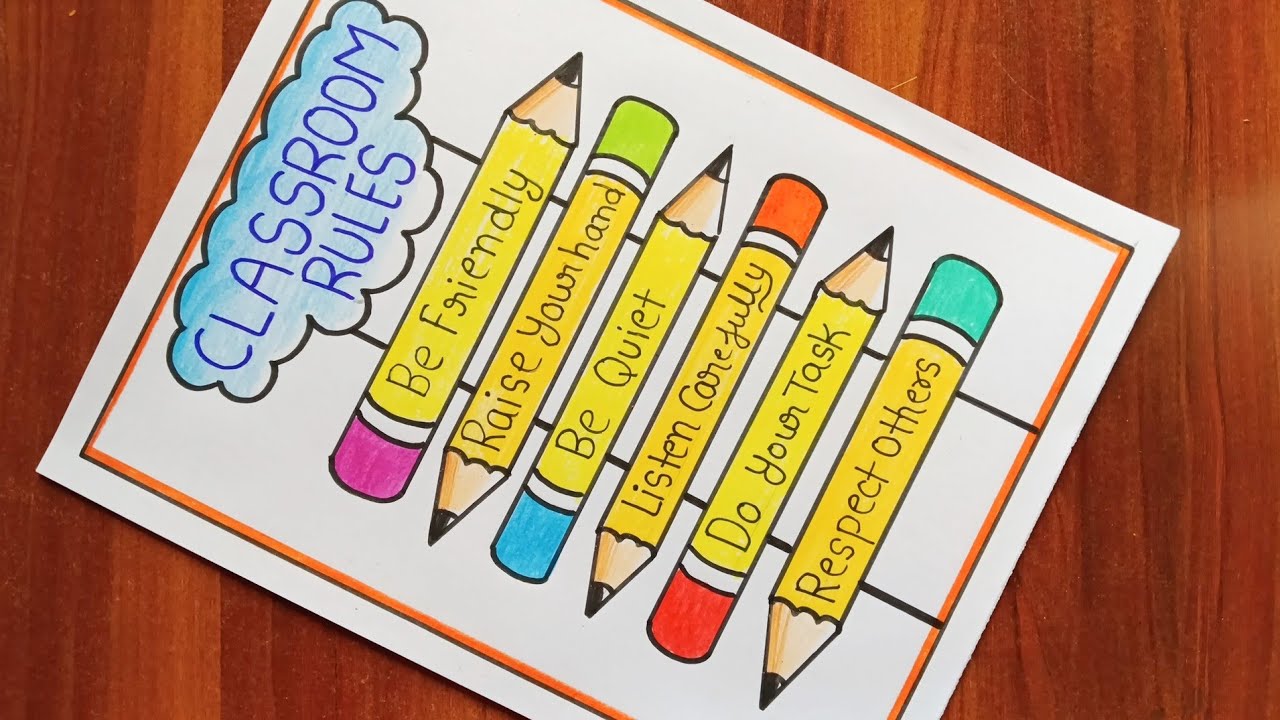 CLASSROOM
RULES
Be Friendly
Raise Your hand
Be Quiet
Listen Carefully
Do Your Task
Respect Others